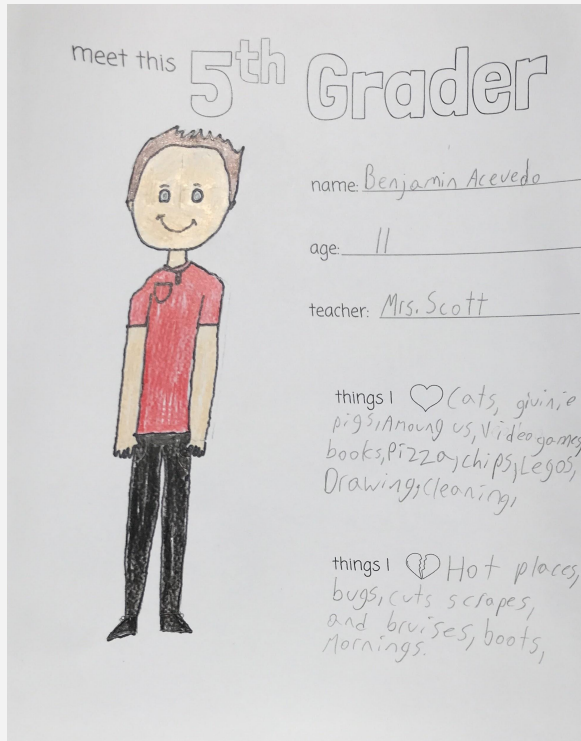 meet this 5th Grader
name: Benjamin Acevedo
age: 11
teacher: Mrs. Scott
things I Cats, givinie
pigs, Amoung us, Videogames,
books, Pizza, chips, Legos,
Drawing, cleaning,
things I Hot places,
bugs, cuts scrapes,
and bruises, boots,
Mornings.